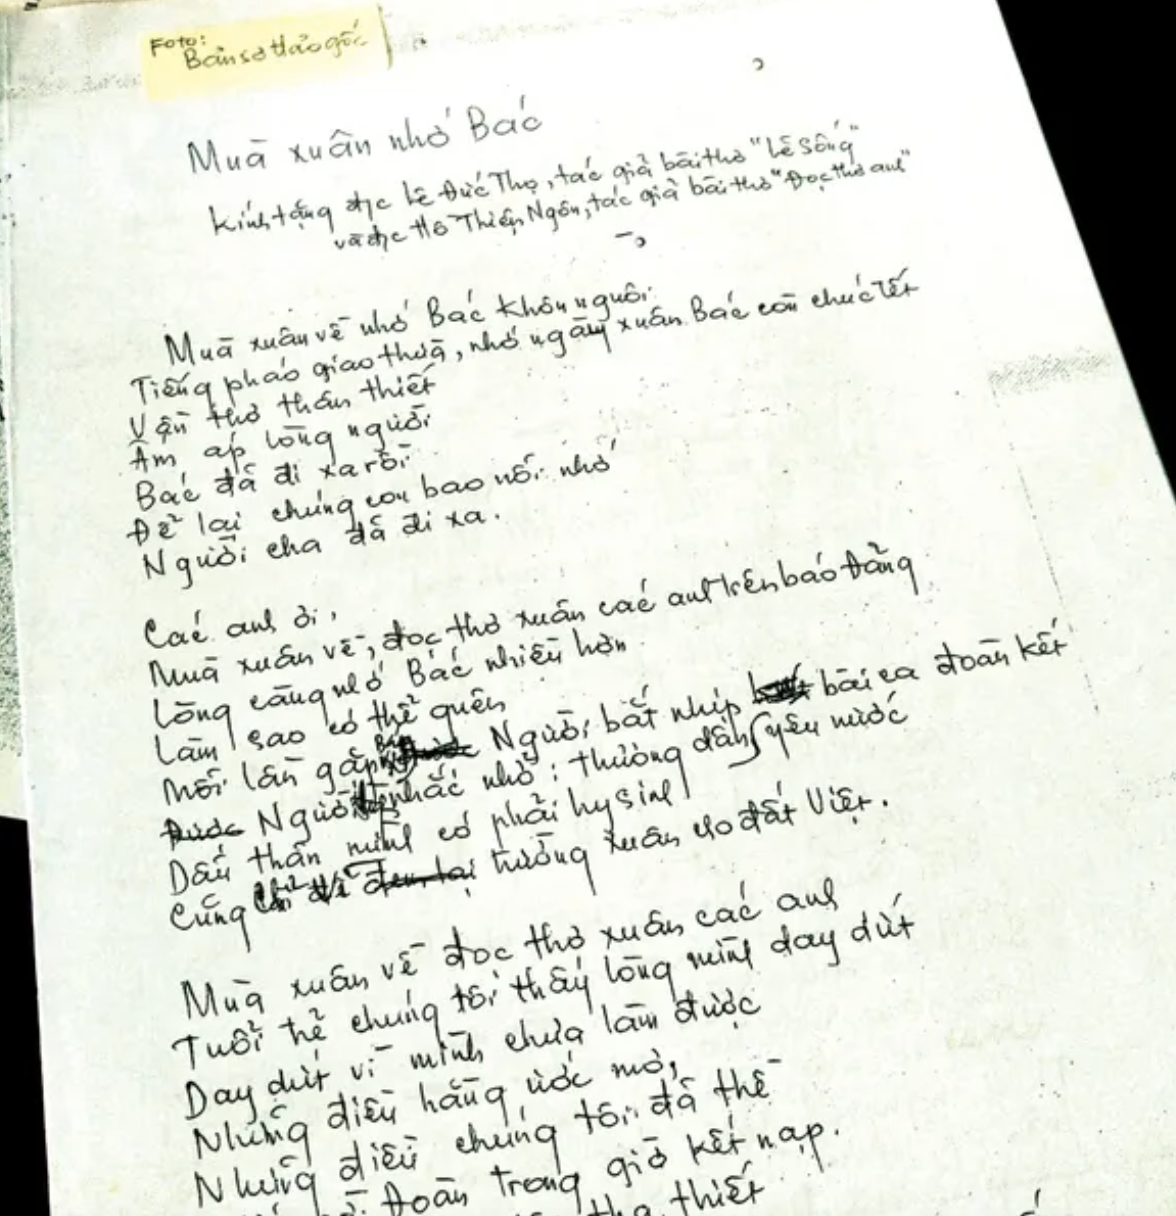 Foto:
Bản sơ thảo gốc
Mùa xuân nhớ Bác
Kính tặng đ/c Lê Đức Thọ, tác giả bài thơ "Lẽ sống"
và đ/c Hồ Thiện Ngôn, tác giả bài thơ "Đọc thơ anh"
Mùa xuân về nhớ Bác khôn nguôi.
Tiếng pháo giao thừa, nhớ ngày xuân Bác còn chúc Tết
Vần thơ thân thiết
Ấm áp lòng người
Bác đã đi xa rồi
Để lại chúng con bao nỗi nhớ
Người cha đã đi xa.
Các anh ơi,
Mùa xuân về, đọc thơ xuân các anh trên báo Đảng
Lòng càng nhớ Bác nhiều hơn
Làm sao có thể quên
Mỗi lần gặp Bác Người bắt nhịp bài ca đoàn kết
Được Người nhắc nhở: thương dân yêu nước
Dẫu thân mình có phải hy sinh
Cũng chỉ vì đem lại hương xuân cho đất Việt.
Mùa xuân về đọc thơ xuân các anh
Tuổi trẻ chúng tôi thấy lòng mình day dứt
Day dứt vì mình chưa làm được
Những điều hằng ước mơ,
Những điều chúng tôi đã thề
Đoàn trong giờ kết nạp.
tha thiết